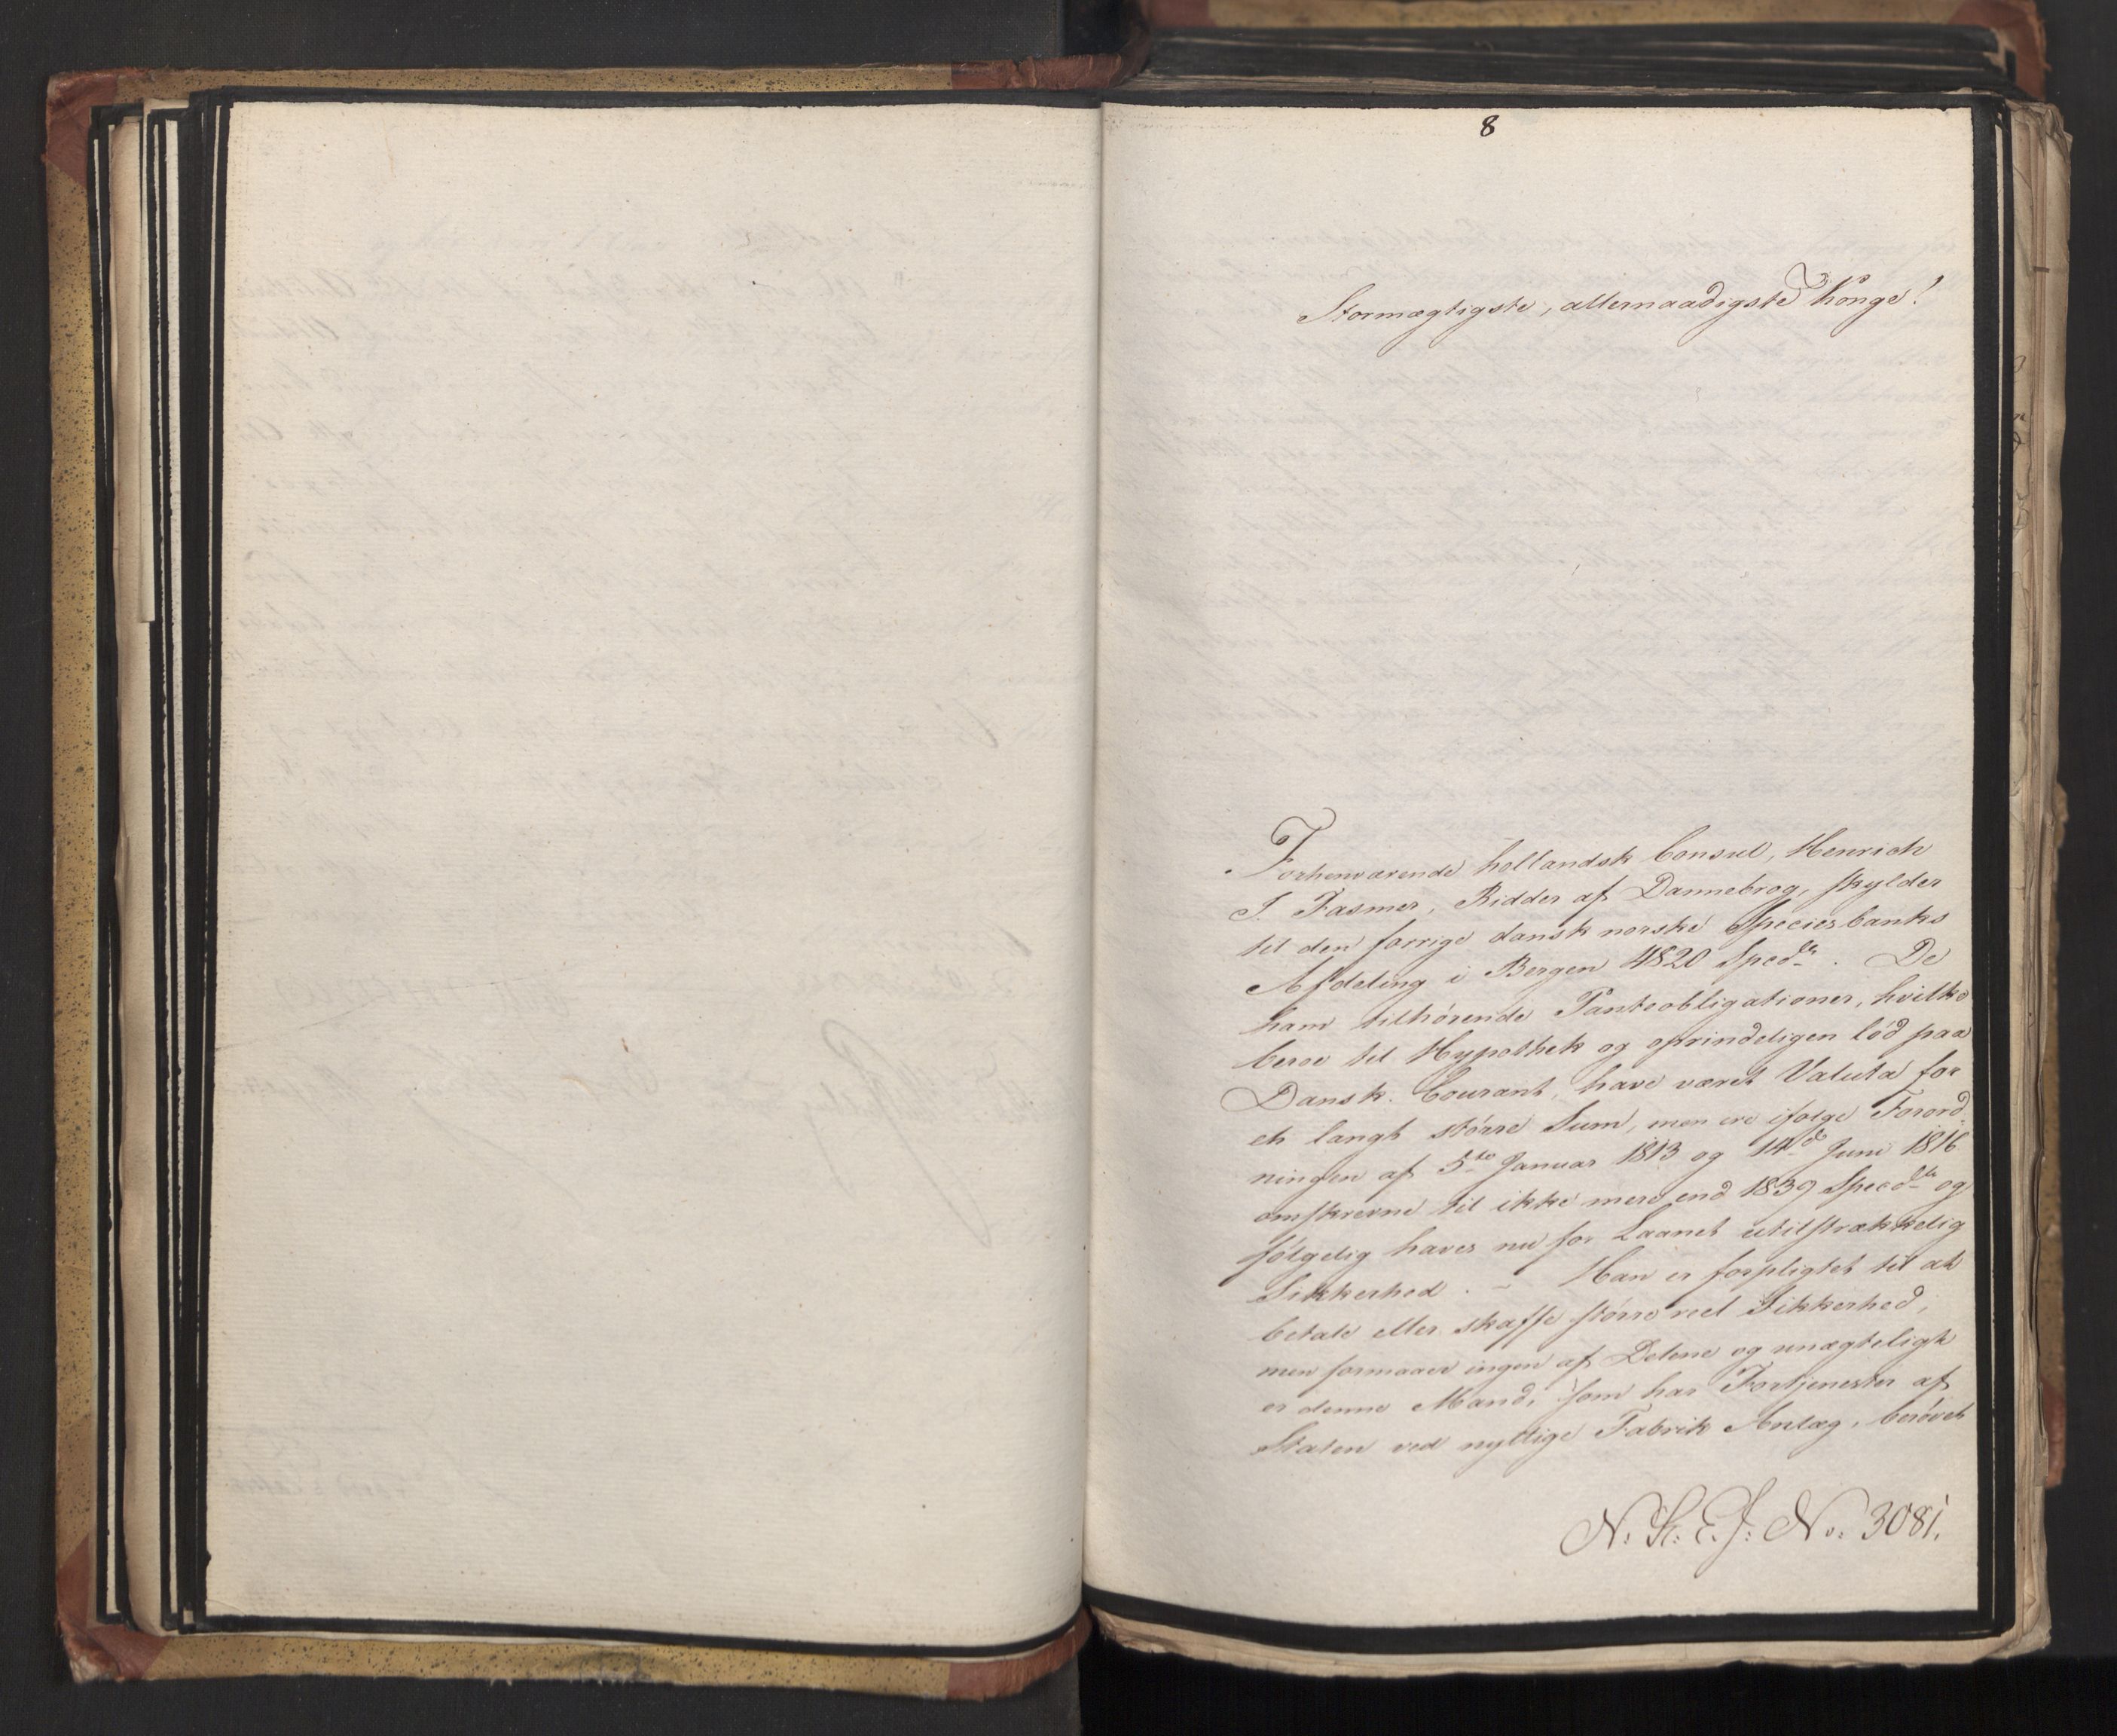 8
Stormægtigste, allernaadigste Konge!
Forhenværende hollandsk Consul, Henrich
J. Fasmer, Ridder af Dannebrog, skylder
til den forrige dansk norske Speciesbanks
Afdeling i Bergen 4820 Spedlr. De
ham tilhørende Panteobligationer, hvilke
beroe til Hypothek og oprindeligen lød paa
Dansk. Courant, have været Valuta for
et langt større Sum, men ere ifølge Forord
ningen af 5te Januar 1813 og 14de Juni 1816
omskrevne til ikke mere end 1839 Specdlr og
følgelig haves nu for Laanet utilstrækkelig
Sikkerhed. - Han er forpligtet til at
betale eller skaffe større reel Sikkerhed,
men formaaer ingen af Delene og unægteligt
er denne Mand, som har Fortjenester af
Staten ved nyttige Fabrik Anlæg, berøvet
N: K: E. J: No: 3081.